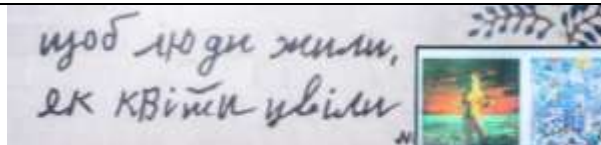 щоб люди жили,
як квіти цвіли